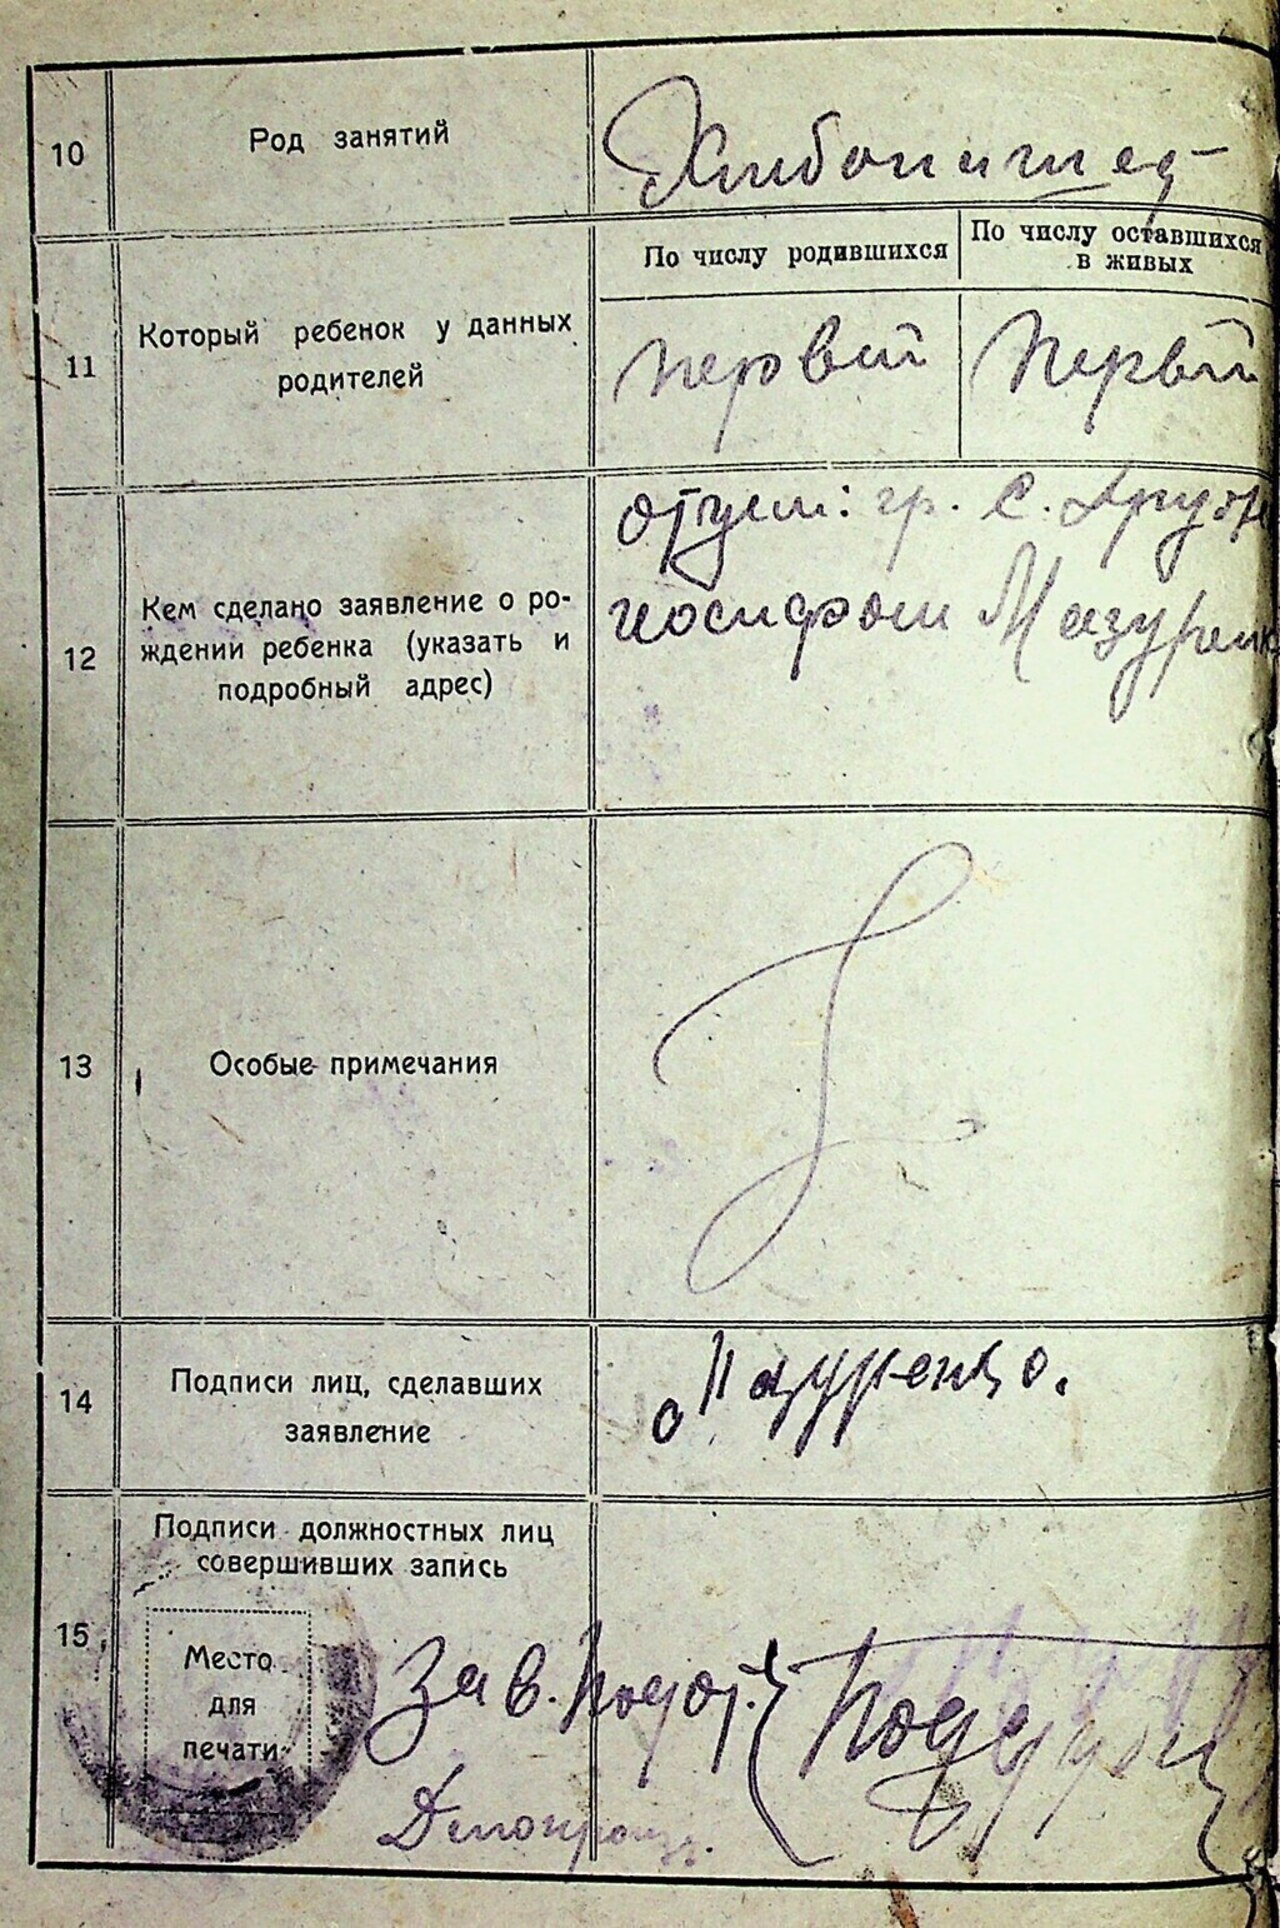 10
Род занятий
11
Который ребенок у данных
родителей
По числу родившихся
По числу оставшихся
в живых
первый
первый
12
Кем сделано заявление о ро-
ждении ребенка (указать и
подробный адрес)
отцем: гр. с.
иосифом Мазуренк
13
Особые примечания
14
Подписи лиц, сделавших
заявление
Мазуренко.
15
Подписи должностных лиц
совершивших запись
Место
для
печати
Зав. Подот.
Делопроизв.